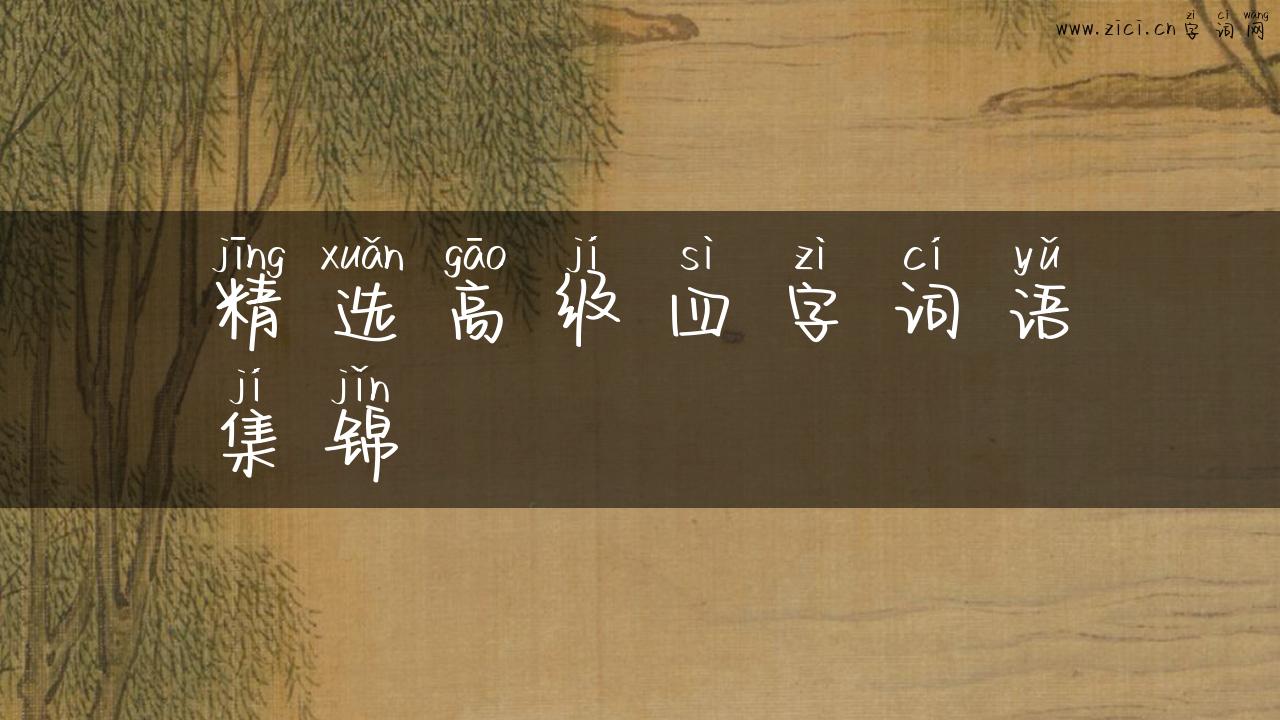 zì cí wǎng
www.zici.cn字词网
jīng xuǎn gāo jí sì zì cí yǔ
精选高级四字词语
jí jǐn
集锦